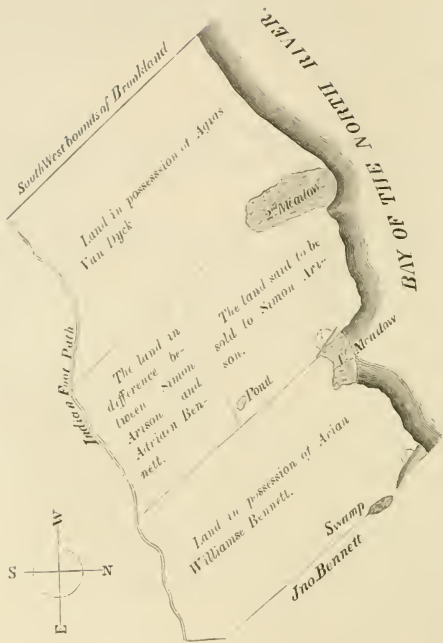 South West bounds of Brookland
BAY OF THE NORTH RIVER.
Land in possession of Agias
Van Dyck
2nd Meadow
Indian Foot Path
The land in
difference be-
tween Simon
Arison and
Adriaen Ben-
nett.
The land said to be
sold to Simon Ari-
son.
Pond
1st Meadow
Land in possession of Arian
Williamse Bennett.
Swamp
Jno. Bennett
W
S
N
E